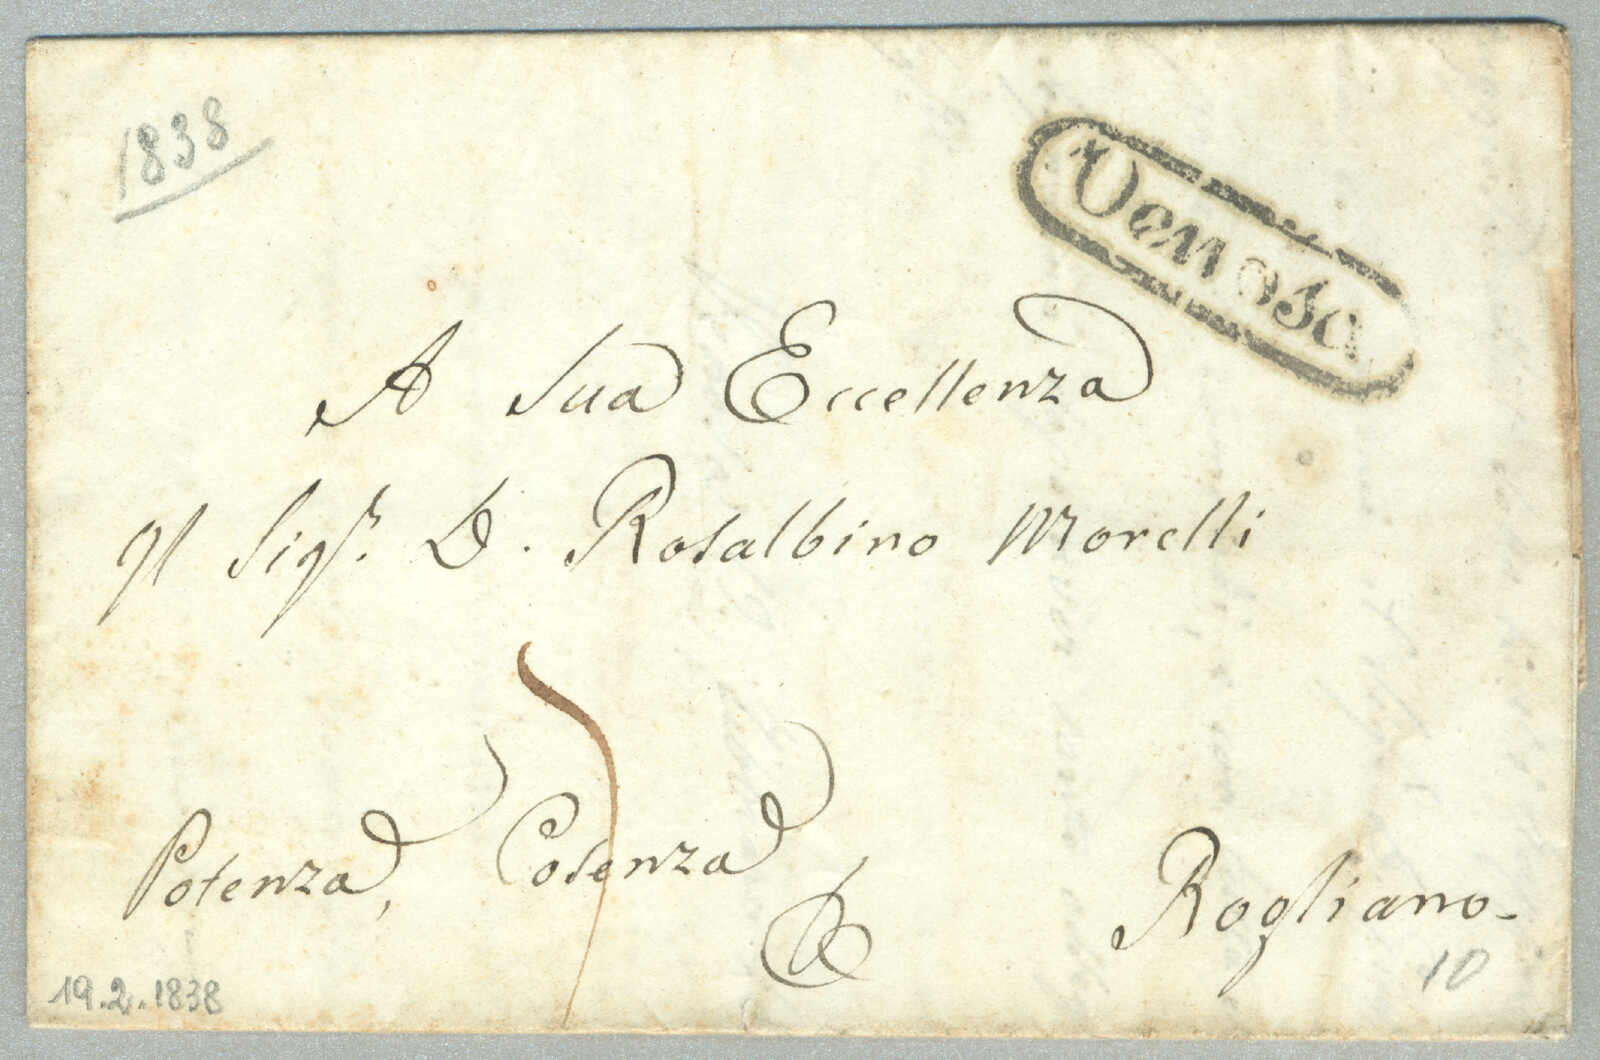 1838
Venosa
A Sua Eccellenza
Il Sigr. D. Rosalbino Morelli
Potenza, Cosenza
Rogliano
10
19.2.1838